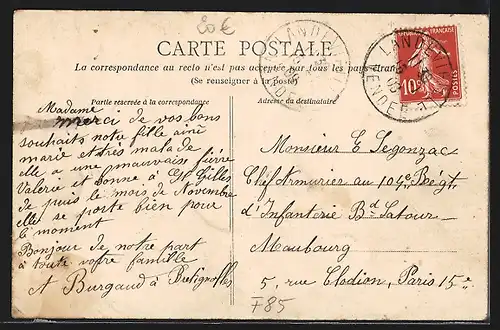 20€
CARTE POSTALE
La correspondance au recto n'est pas acceptée par tous les pays étrangers
(Se renseigner à la poste)
Partie réservée à la correspondance
Adresse du destinataire
Madame
merci de vos bons
souhaits notre fille ainé
marie est très malade
elle a une mauvaise fièvre
Valérie est bonne à St Gilles
de puis le mois de Novembre
elle se porte bien pour
le moment
Bonjour de notre part
à toute votre famille
A Burgaud à
Monsieur E Segonzac
Chef Armurier au 104e Régt
d'Infanterie Bd Latour-
Maubourg
5, rue Clodion, Paris 15e
F85
10c
POSTES
VENDÉE